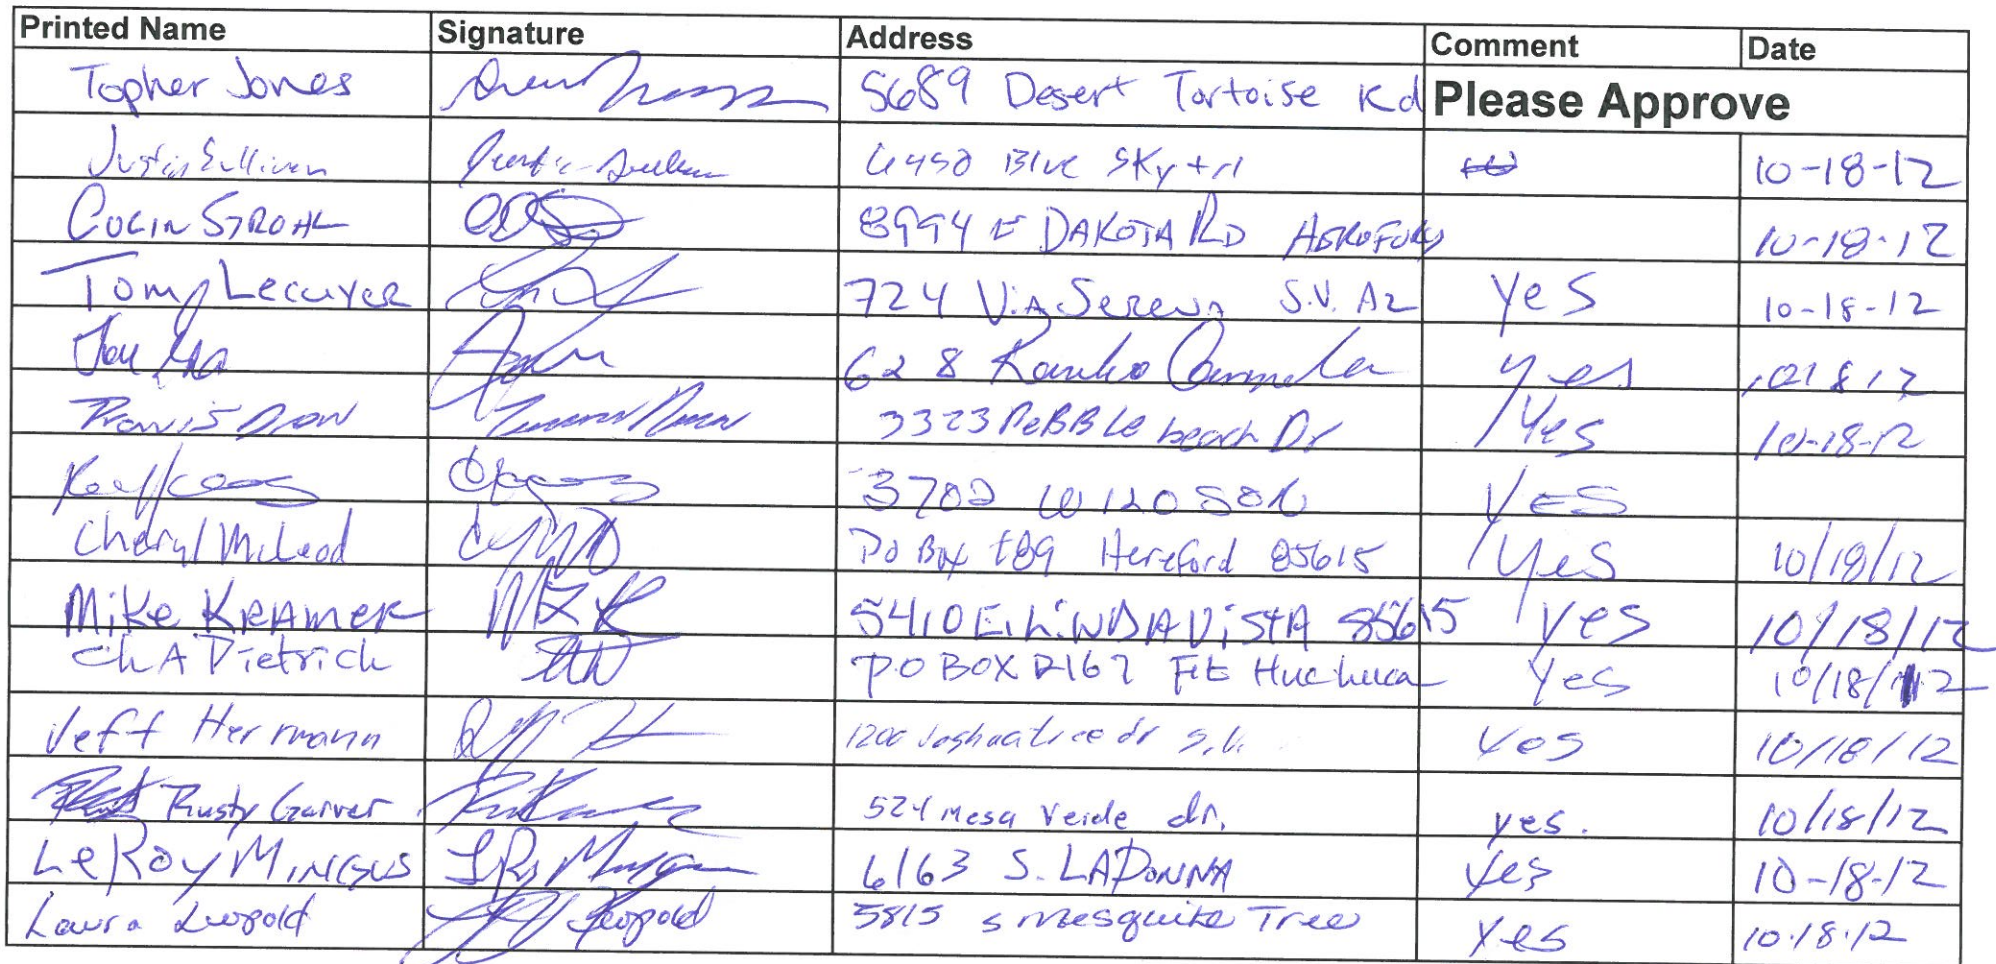 Printed Name Signature Address Comment Date
Topher Jones 5689 Desert Tortoise Rd Please Approve
Justin Sullivan 6450 Blue Sky trl 10-18-12
COLIN STROHL 8994 E DAKOTA RD 10-18-12
Tom Lecuyer 724 Via Serena S.V. AZ Yes 10-18-12
628 Rancho Carmela yes 101812
Travis Dow 3323 PeBBLe beach Dr Yes 10-18-12
3702 WILOSON YES
Cheryl McLeod PO Box Hereford 85615 Yes 10/18/12
Mike KRAMER MZK 5410 E. LiNDA ViStA 85615 Yes 10/18/12
Ch A Dietrich P.O BOX Ft Huchuca Yes 10/18/12
Jeff Hermann 1200 Joshuatree dr S.V. Yes 10/18/12
Rusty Garver 524 Mesa Verde dr. yes. 10/18/12
LeRoy MINGUS 6163 S. LADONNA Yes 10-18-12
Laura Leopold Leopold 5815 S Mesquite Tree Yes 10.18.12